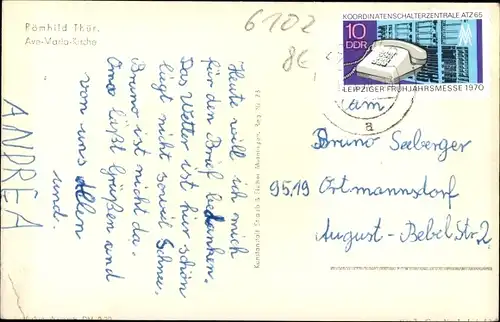 Römhild Thür.
Ave-Maria-Kirche
6102
8E
KOORDINATENSCHALTERZENTRALE ATZ 65
10
DDR
LEIPZIGER FRÜHJAHRSMESSE 1970
a
Heute will ich mich
für den Brief bedanken.
Das Wetter ist hier schön
liegt nicht soviel Schnee,
Bruno ist nicht da.
Oma läßt Grüßen und
von uns allen
und.
ANDREA
Bruno Seeberger
9519 Ortmannsdorf
August-Bebel Str. 2